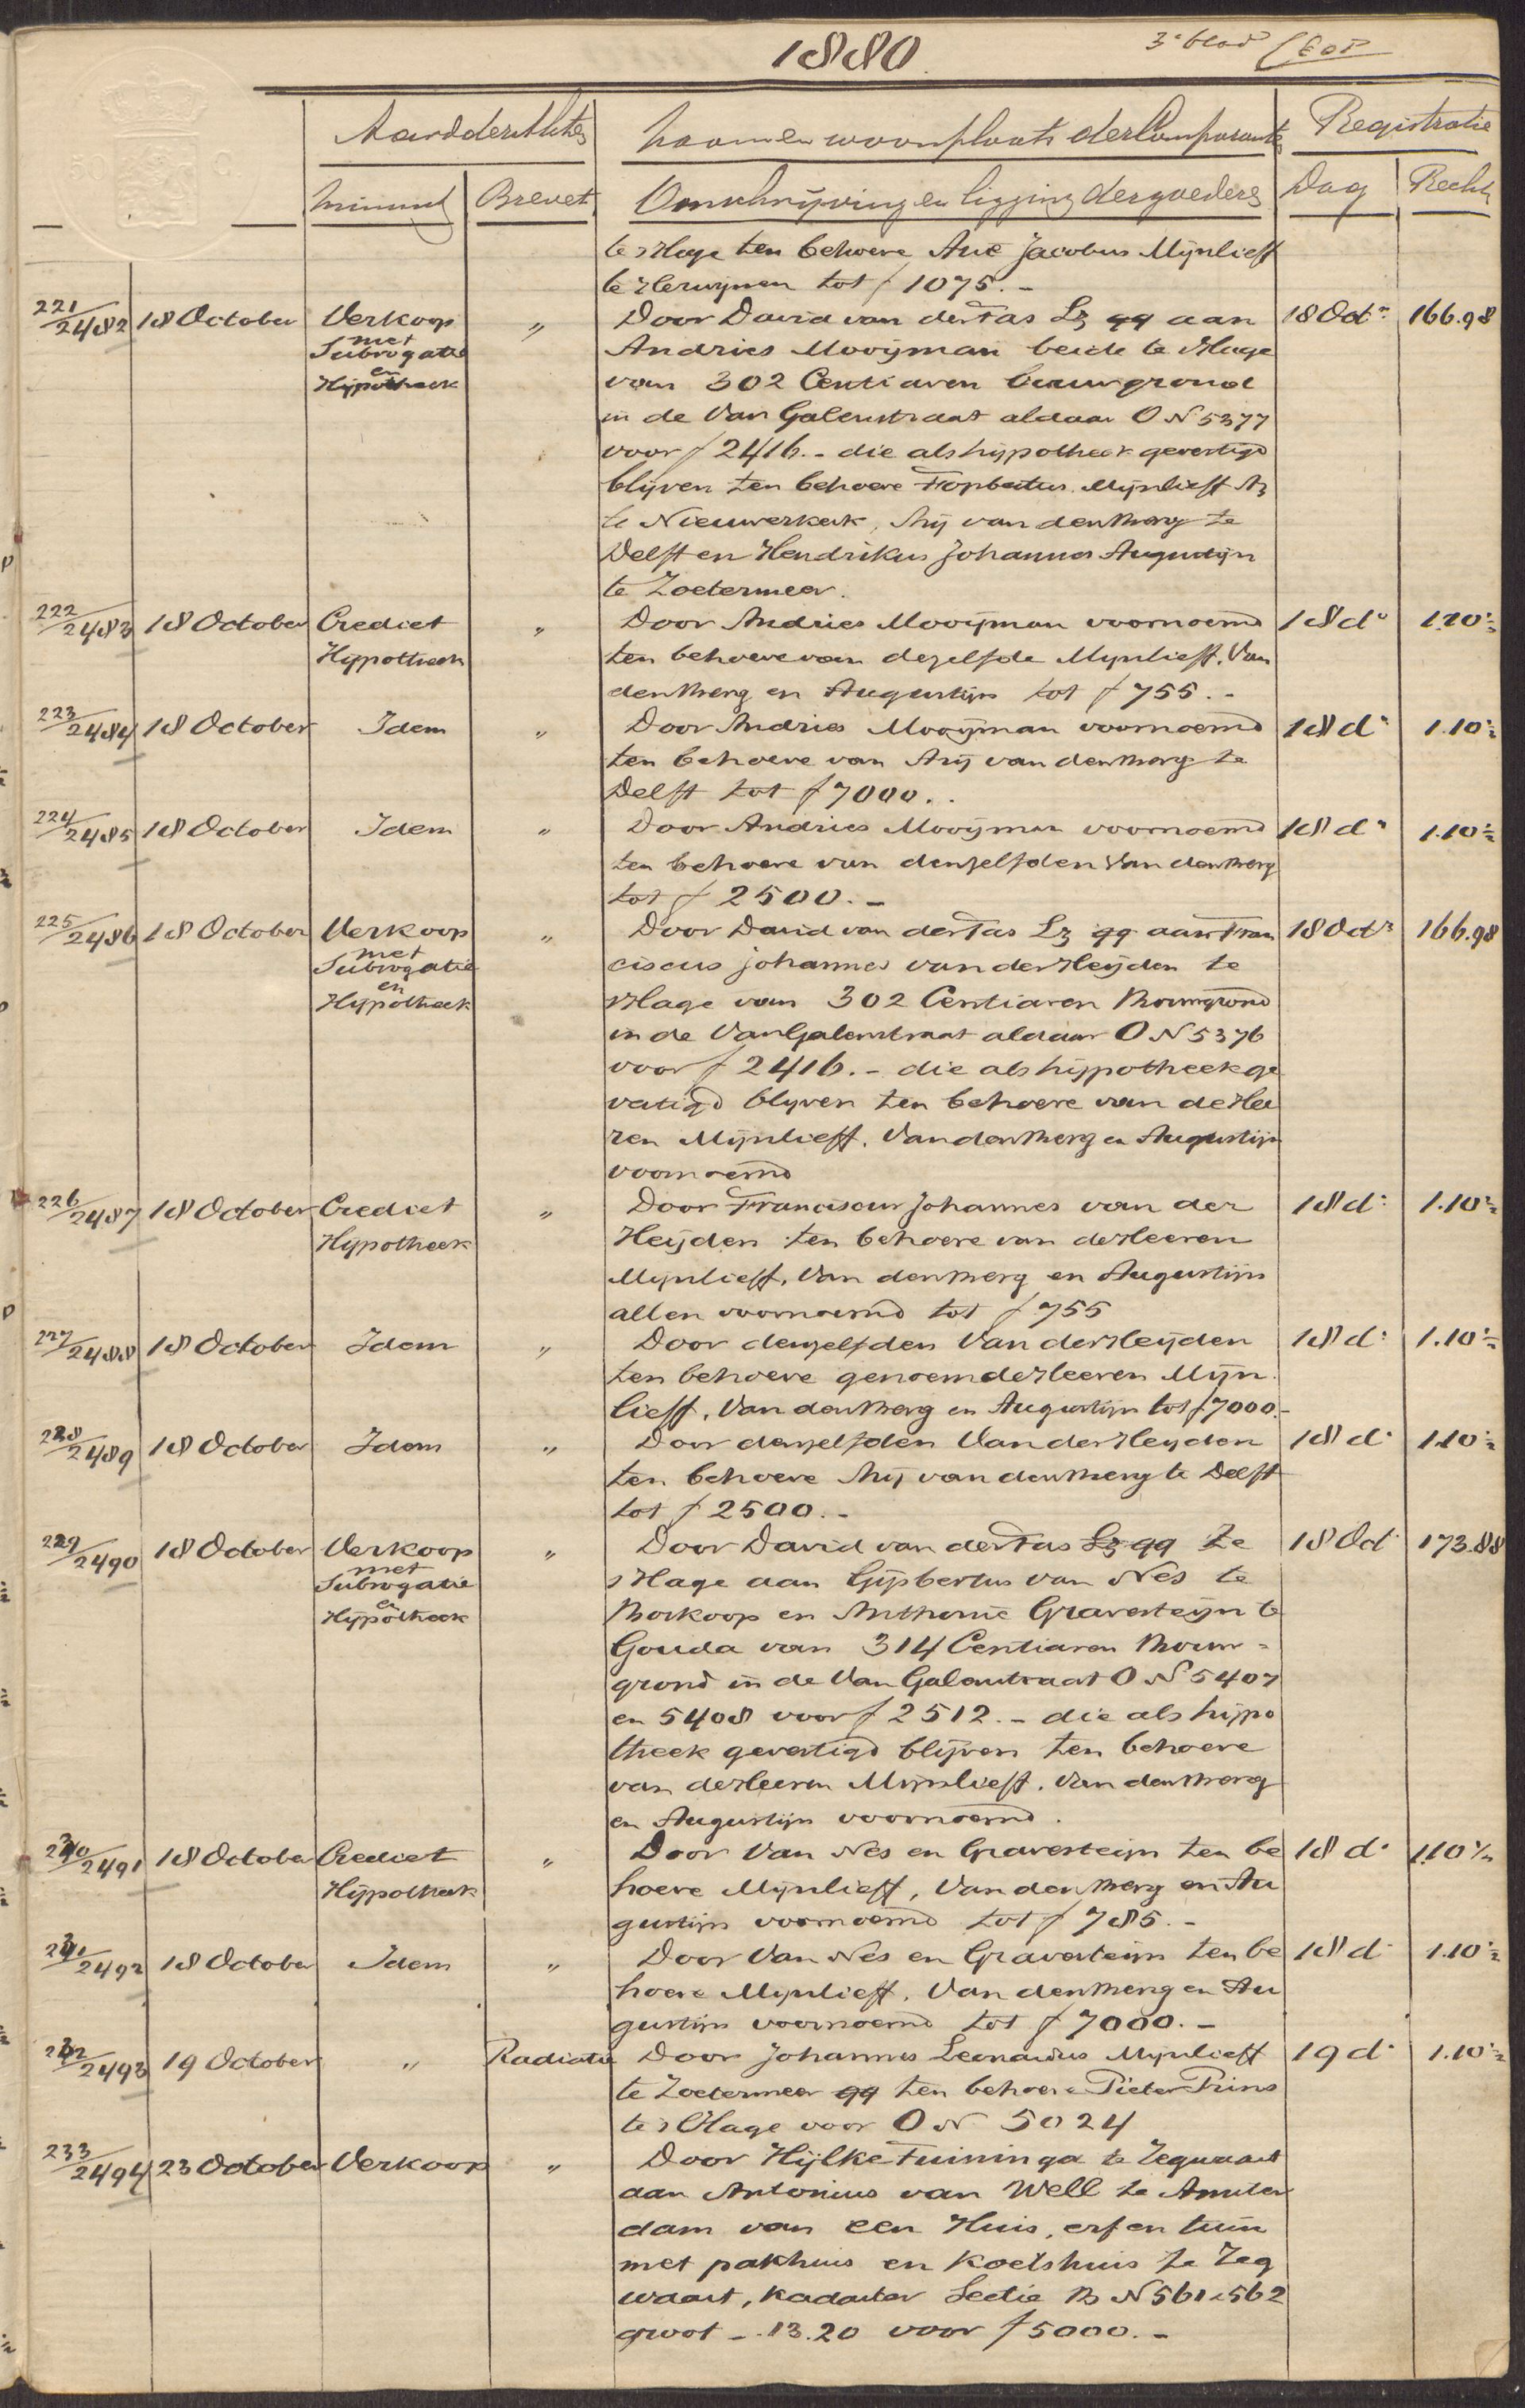 1880
3e blad
Aard der Akte
Naam en woonplaats der Comparante
Registratie
Minuut
Brevet
Omschrijving en ligging der goederen
Dag
Recht
te 's Hage ten behoeve Arie Jacobus Mijnlieff
te Herwijnen tot f 1075.-
221/2482 18 October Verkoop met Subrogatie en Hypotheek " Door David van der Tas Lz qq aan 18 Octr 166.98
Andries Mooijman beide te 's Hage
van 302 Centiaren bouwgrond
in de Van Galenstraat aldaar O No 5377
voor f 2416.- die als hypotheek gevestigd
blijven ten behoeve Fopbertus Mijnlieff Az
te Nieuwerkerk, Arij van den Berg te
Delft en Hendrikus Johannes Augustijn
te Zoetermeer.
222/2483 18 October Crediet Hypotheek " Door Andries Mooijman voornoemd 18 do 1.10½
ten behoeve van dezelfde Mijnlieff, Van
den Berg en Augustijn tot f 755.-
223/2484 18 October Idem " Door Andries Mooijman voornoemd 18 do 1.10½
ten behoeve van Arij van den Berg te
Delft tot f 7000..
224/2485 18 October Idem " Door Andries Mooijman voornoemd 18 do 1.10½
ten behoeve van denzelfden Van den Berg
tot f 2500.-
225/2486 18 October Verkoop met Subrogatie en Hypotheek " Door David van der Tas Lz qq aan Fran 18 Octr 166.98
ciscus Johannes van der Heijden te
's Hage van 302 Centiaren Bouwgrond
in de Van Galenstraat aldaar O No 5376
voor f 2416.- die als hijpotheek ge
vestigd blijven ten behoeve van de Hee
ren Mijnlieff, Van den Berg en Augustijn
voornoemd
226/2487 18 October Crediet Hypotheek " Door Franciscus Johannes van der 18 do 1.10½
Heijden ten behoeve van de Heeren
Mijnlieff, Van den Berg en Augustijn
allen voornoemd tot f 755
227/2488 18 October Idem " Door denzelfden Van der Heijden 18 do 1.10½
ten behoeve genoemde Heeren Mijn
lieff, Van den Berg en Augustijn tot f 7000.-
228/2489 18 October Idem " Door denzelfden Van der Heijden 18 do 1.10½
ten behoeve Arij van den Berg te Delft
tot f 2500.-
229/2490 18 October Verkoop met Subrogatie en Hypotheek " Door David van der Tas Lz qq te 18 Oct 173.88
's Hage aan Gijsbertus van Nes te
Boskoop en Anthonie Gravesteijn te
Gouda van 314 Centiaren Bouw-
grond in de Van Galenstraat O No 5407
en 5408 voor f 2512.- die als hijpo
theek gevestigd blijven ten behoeve
van de Heeren Mijnlieff, Van den Berg
en Augustijn voornoemd.
230/2491 18 October Crediet Hijpotheek " Door Van Nes en Gravesteijn ten be 18 do 1.10½
hoeve Mijnlieff, Van den Berg en Au
gustijn voornoemd tot f 785.-
231/2492 18 October Idem " Door Van Nes en Gravesteijn ten be 18 do 1.10½
hoeve Mijnlieff, Van den Berg en Au
gustijn voornoemd tot f 7000.-
232/2493 19 October " Radiatie Door Johannes Leonardus Mijnlieff 19 do 1.10½
te Zoetermeer qq ten behoeve Pieter Prins
te 's Hage voor O No 5024
233/2494 23 October Verkoop " Door Hijlke Tuininga te Zegwaart
aan Antonius van Well te Amster
dam van een Huis, erf en tuin
met pakhuis en koetshuis te Zeg
waart, kadaster Sectie B No 561 562
groot -.13.20 voor f 5000.-